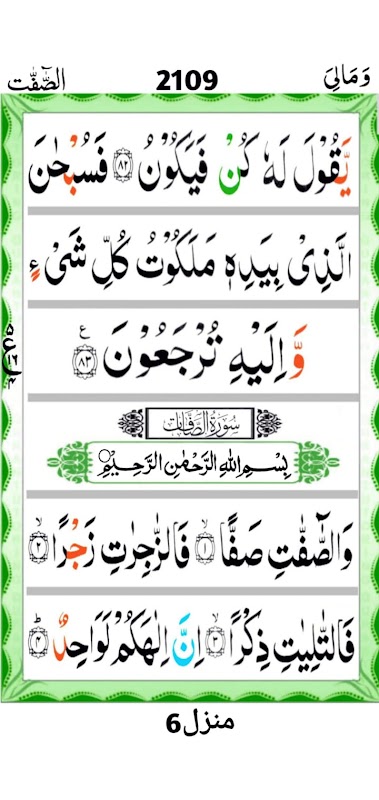 الصّٰٓفّٰت 2109 وَمَالِیَ
یَّقُوۡلَ لَهٗ كُنۡ فَیَكُوۡنُ ﴿۸۲﴾ فَسُبۡحٰنَ
الَّذِیۡ بِیَدِهٖ مَلَكُوۡتُ كُلِّ شَیۡءٍ
وَّاِلَیۡهِ تُرۡجَعُوۡنَ ﴿۸۳﴾ ع
سُوۡرَةُ الصَّافَّاتِ
بِسۡمِ اللهِ الرَّحۡمٰنِ الرَّحِیۡمِ
وَالصّٰٓفّٰتِ صَفًّا ﴿۱﴾ۙ فَالزّٰجِرٰتِ زَجۡرًا ﴿۲﴾ۙ
فَالتّٰلِیٰتِ ذِكۡرًا ﴿۳﴾ۙ اِنَّ اِلٰهَكُمۡ لَوَاحِدٌ ﴿۴﴾ؕ
منزل6